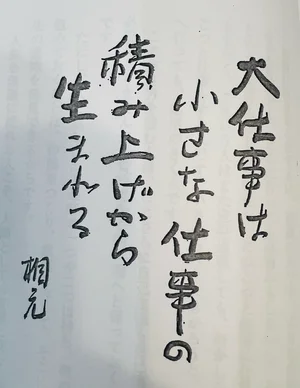 大仕事は
小さな仕事の
積み上げから
生まれる
相元